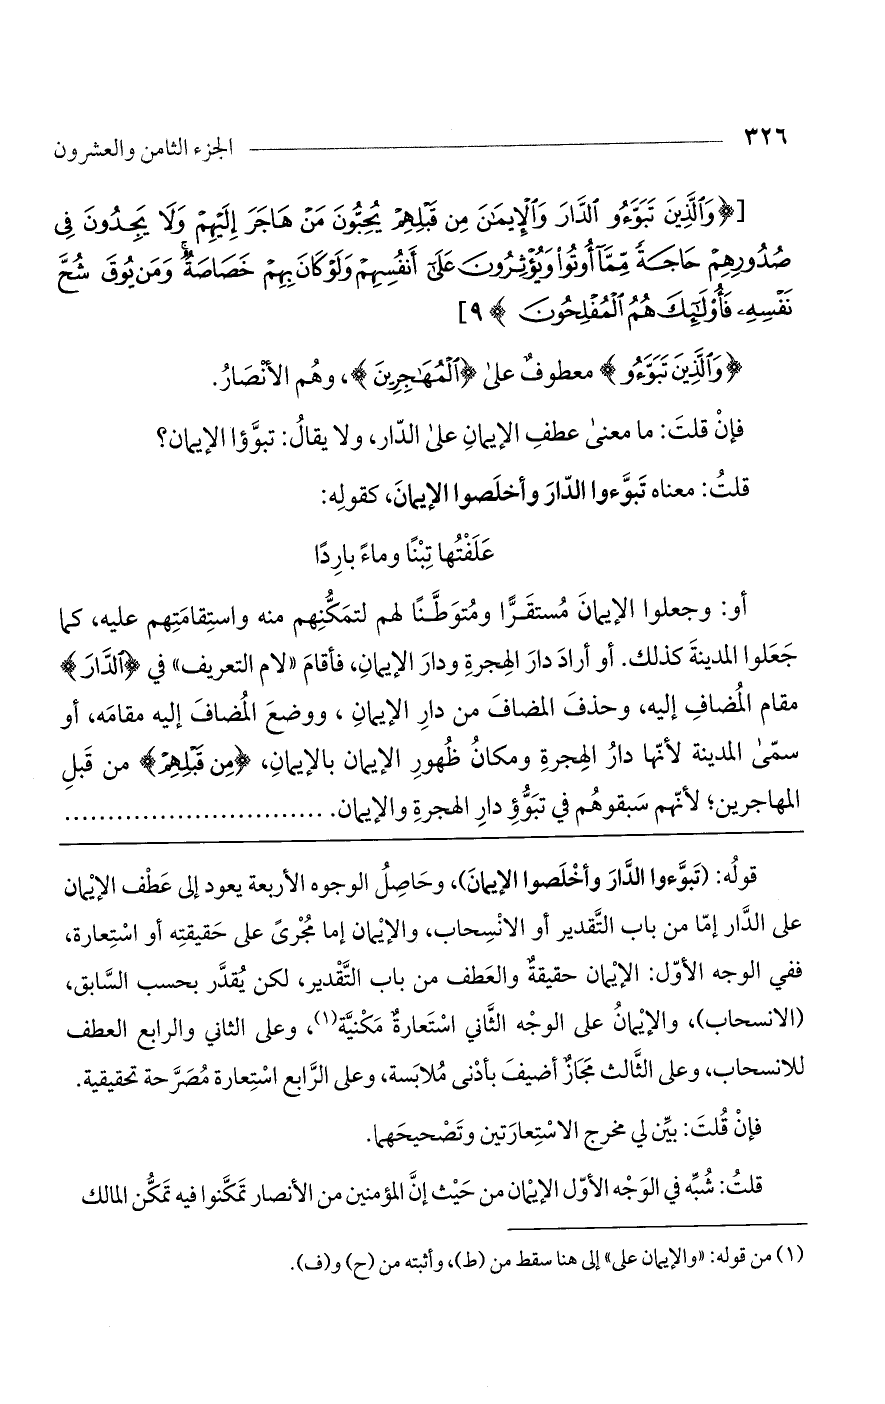 ٣٢٦ ــــــــــ الجزء الثامن والعشرون
[﴿وَٱلَّذِينَ تَبَوَّءُو ٱلدَّارَ وَٱلْإِيمَٰنَ مِن قَبْلِهِمْ يُحِبُّونَ مَنْ هَاجَرَ إِلَيْهِمْ وَلَا يَجِدُونَ فِى
صُدُورِهِمْ حَاجَةً مِّمَّآ أُوتُوا۟ وَيُؤْثِرُونَ عَلَىٰٓ أَنفُسِهِمْ وَلَوْ كَانَ بِهِمْ خَصَاصَةٌ ۚ وَمَن يُوقَ شُحَّ
نَفْسِهِۦ فَأُو۟لَٰٓئِكَ هُمُ ٱلْمُفْلِحُونَ ﴾ ٩]
﴿وَٱلَّذِينَ تَبَوَّءُو ﴾ معطوفٌ على ﴿ٱلْمُهَٰجِرِينَ﴾، وهُم الأنْصَارُ.
فإنْ قلتَ: ما معنىٰ عطفِ الإيمانِ علىٰ الدّار، ولا يقالُ: تبوَّؤا الإيمان؟
قلتُ: معناه تَبوَّءوا الدّارَ وأخلَصوا الإيمانَ، كقولِه:
عَلَفْتُها تِبْنًا وماءً بارِدًا
أو: وجعلوا الإيمانَ مُستقَرًّا ومُتوَطَّنًا لهم لتمَكُّنِهم منه واستِقامَتِهم عليه، كما
جَعَلوا المدينةَ كذلك. أو أرادَ دارَ الهِجرةِ ودارَ الإيمانِ، فأقامَ «لام التعريف» في ﴿ٱلدَّارَ ﴾
مقام المُضافِ إليه، وحذفَ المضافَ من دارِ الإيمانِ ، ووضعَ المُضافَ إليه مقامَه، أو
سمّىٰ المدينة لأنها دارُ الهِجرةِ ومكانُ ظُهورِ الإيمان بالإيمانِ، ﴿مِن قَبْلِهِمْ﴾ من قَبلِ
المهاجرين؛ لأنّهم سَبقوهُم في تبَوُّؤِ دارِ الهجرةِ والإيمان. ..............................
قولُه: (تَبوَّءوا الدَّارَ وأخْلَصوا الإيمَانَ)، وحَاصِلُ الوجوه الأربعة يعود إلى عَطْف الإيْمان
على الدَّار إمّا من باب التَّقدير أو الانْسِحاب، والإيْمان إما مُجْرىً على حَقيقتِه أو اسْتِعارة،
ففي الوجه الأوّل: الإيْمان حقيقةٌ والعَطف من باب التَّقْدير، لكن يُقدَّر بحسب السَّابق،
(الانسحاب)، والإيْمانُ على الوجْه الثَّاني اسْتَعارةٌ مَكْنيَّة(١)، وعلى الثاني والرابع العطف
للانسحاب، وعلى الثَّالث مَجَازٌ أضيفَ بأدْنى مُلابَسة، وعلى الرَّابع اسْتِعارة مُصَرَّحة تحقيقية.
فإنْ قُلتَ: بيِّن لي مخرج الاسْتِعارَتين وتَصْحيحَهما.
قلتُ: شُبِّه في الوَجْه الأوّل الإيْمان من حَيْث إنَّ المؤمنين من الأنصار تَمكَّنوا فيه تَمكُّن المالك
(١) من قوله: «والإيمان على» إلى هنا سقط من (ط)، وأثبته من (ح) و(ف).